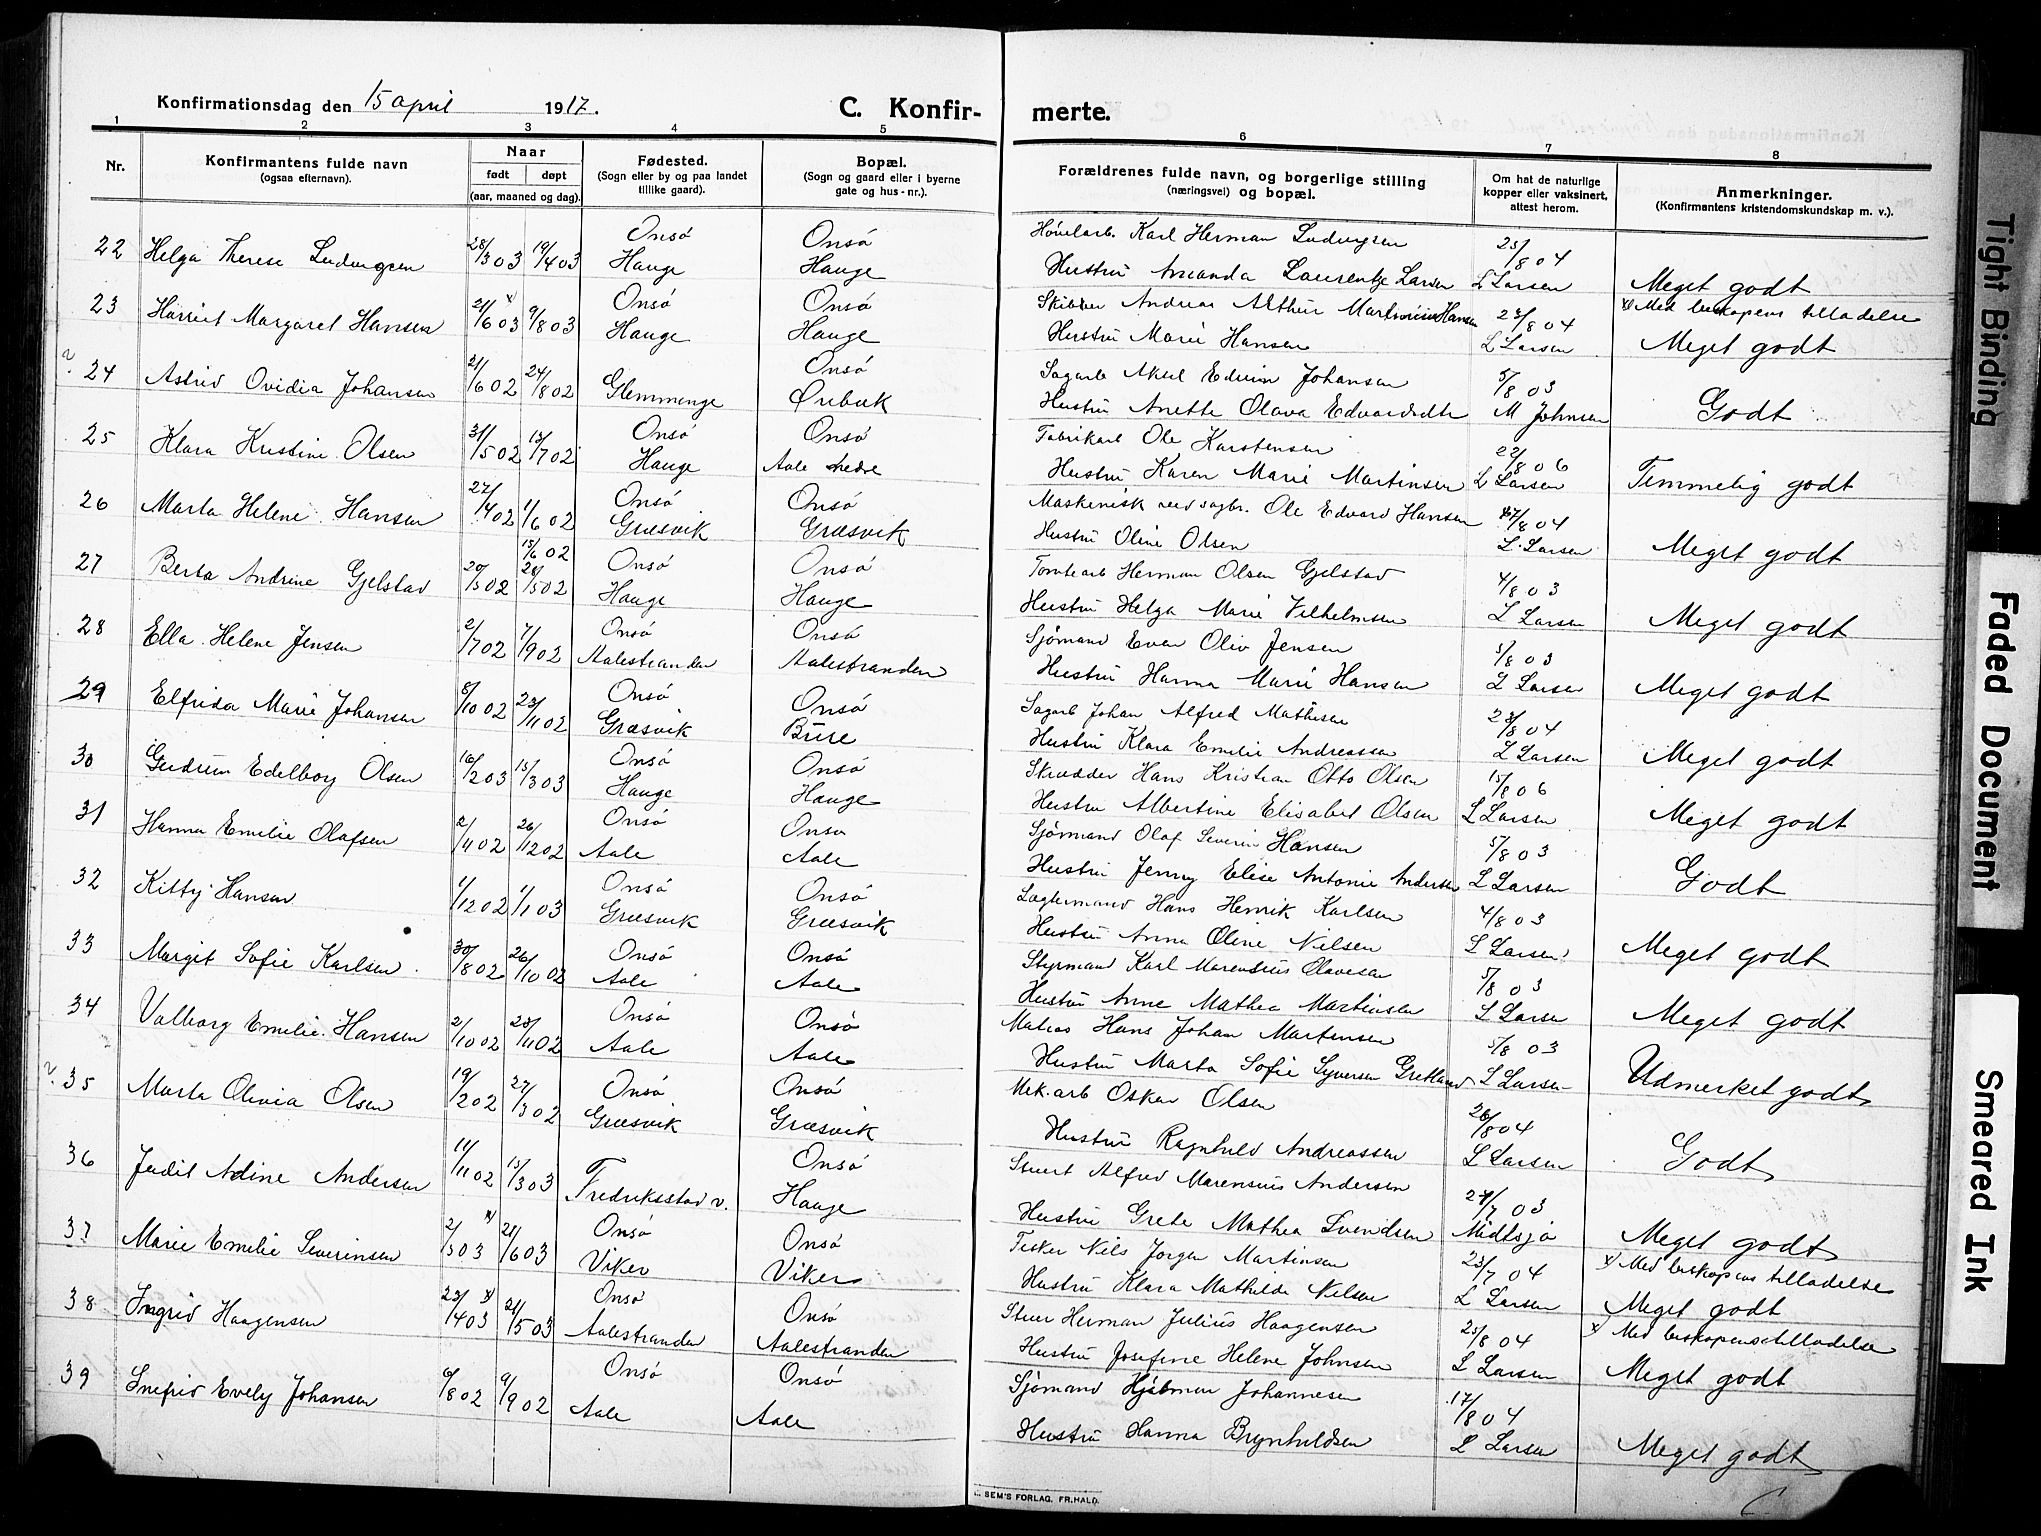 Konfirmationsdag den 15 april 1917.
C. Konfir- merte.
1 2 3 4 5 6 7 8
Nr.
Konfirmantens fulde navn
(ogsaa efternavn).
Naar
født døpt
(aar, maaned og dag).
Fødested.
(Sogn eller by og paa landet
tillike gaard).
Bopæl.
(Sogn og gaard eller i byerne
gate og hus-nr.).
Forældrenes fulde navn, og borgerlige stilling
(næringsvei) og bopæl.
Om hat de naturlige
kopper eller vaksinert,
attest herom.
Anmerkninger.
(Konfirmantens kristendomskundskap m. v.).
22 Helga Therese Ludvigsen 28/3 03 19/4 03 Onsö Onsö Høvelarb. Karl Herman Ludvigsen 25/8 04
Hauge Hauge Hustru Amanda Laurentze Larsen L Larsen Meget godt
23 Harriet Margaret Hansen 21/6 03 x) 9/8 03 Onsö Onsö Skibber Andreas Arthur Martinius Hansen 23/8 04 x) Med biskopens tilladelse
Hauge Hauge Hustru Marie Hansen L Larsen Meget godt
24 Astrid Ovidia Johansen 21/6 02 24/8 02 Glemminge Onsö Sagarb Aksel Edvin Johansen 5/8 03
Ørebæk Hustru Anette Olava Edvardsdtr M Johnsen Godt
25 Klara Kristine Olsen 31/5 02 13/7 02 Onsö Onsö Fabrikarb Ole Karstensen 22/8 06
Hauge Aale nedre Hustru Karen Marie Martinsen L Larsen Temmelig godt
26 Marta Helene Hansen 27/4 02 1/6 02 Onsö Onsö Maskinisk ved sagbr. Ole Edvard Hansen 17/8 04
Græsvik Græsvik Hustru Oline Olsen L. Larsen Meget godt
15/6 02
27 Berta Andrine Gjelstad 20/5 02 28/5 02 Onsö Onsö Tomtearb Herman Olsen Gjelstad 4/8 03
Hauge Hauge Hustru Helga Marie Vilhelmsen L Larsen Meget godt
28 Ella Helene Jensen 2/7 02 7/9 02 Onsö Onsö Sjömand Even Oliv Jensen 5/8 03
Aalestranden Aalestranden Hustru Hanna Marie Hansen L Larsen Meget godt
29 Elfrida Marie Johansen 8/10 02 23/11 02 Onsö Onsö Sagarb Johan Alfred Mathisen 23/8 04
Græsvik Bure Hustru Klara Emilie Andreassen L Larsen Meget godt
30 Gudrun Edelborg Olsen 16/2 03 15/3 03 Onsö Onsö Skrædder Hans Kristian Otto Olsen 15/8 06
Hauge Hauge Hustru Albertine Elisabet Olsen L Larsen Meget godt
31 Hanna Emilie Olafsen 2/11 02 26/12 02 Onsö Onsö Sjömand Olaf Severin Hansen 5/8 03
Aale Aale Hustru Jenny Elise Antonie Andersen L Larsen Godt
32 Kitty Hansen 1/12 02 1/1 03 Onsö Onsö Lagtermand Hans Henrik Karlsen 4/8 03
Græsvik Græsvik Hustru Anna Oline Nilsen L Larsen Meget godt
33 Margit Sofie Karlsen 30/8 02 26/10 02 Onsö Onsö Styrmand Karl Marendius Olavesen 5/8 03
Aale Aale Hustru Anne Mathea Martinsen L Larsen Meget godt
34 Valborg Emilie Hansen 2/10 02 23/11 02 Onsö Onsö Matros Hans Johan Martinsen 5/8 03
Aale Aale Hustru Marta Sofie Syversen Gretland L Larsen Udmerket godt
35 Marta Olivia Olsen 19/2 02 27/3 02 Onsö Onsö Mek. arb Oskar Olsen 26/8 04
Græsvik Græsvik Hustru Ragnhild Andreassen L Larsen Godt
36 Judit Adine Andersen 11/11 02 15/3 03 Fredriksstad v. Onsö Stuert Alfred Marensius Andersen 27/7 03
Hauge Hustru Grete Mathea Svendsen Midtsjø Meget godt
37 Marie Emilie Severinsen 2/5 03 x) 21/6 03 Onsö Onsö Fisker Nils Jørgen Martinsen 23/7 04 x) Med biskopens tilladelse
Viker Viker Hustru Klara Mathilde Nilsen L Larsen Meget godt
38 Ingrid Haagensen 23/4 03 x) 21/5 03 Onsö Onsö Stuer Herman Julius Haagensen 25/8 04 x) Med biskopens tilladelse
Aalestranden Aalestranden Hustru Josefine Helene Johnsen L Larsen Meget godt
39 Snefrid Evely Johansen 6/8 02 9/9 02 Onsö Onsö Sjömand Hjalmar Johannesen 17/8 04
Aale Aale Hustru Hanna Brynhildsen L Larsen Meget godt
SEM'S FORLAG, FR.HALD.
Tight Binding
Faded Document
Smeared Ink